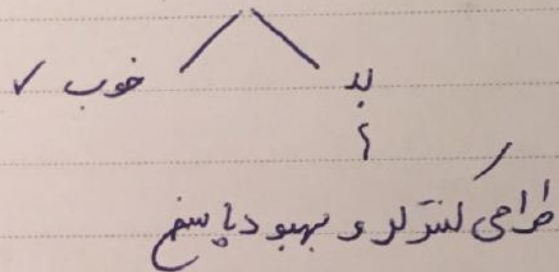 خوب ✓ بد
طراحی کنترلر و بهبود پاسخ